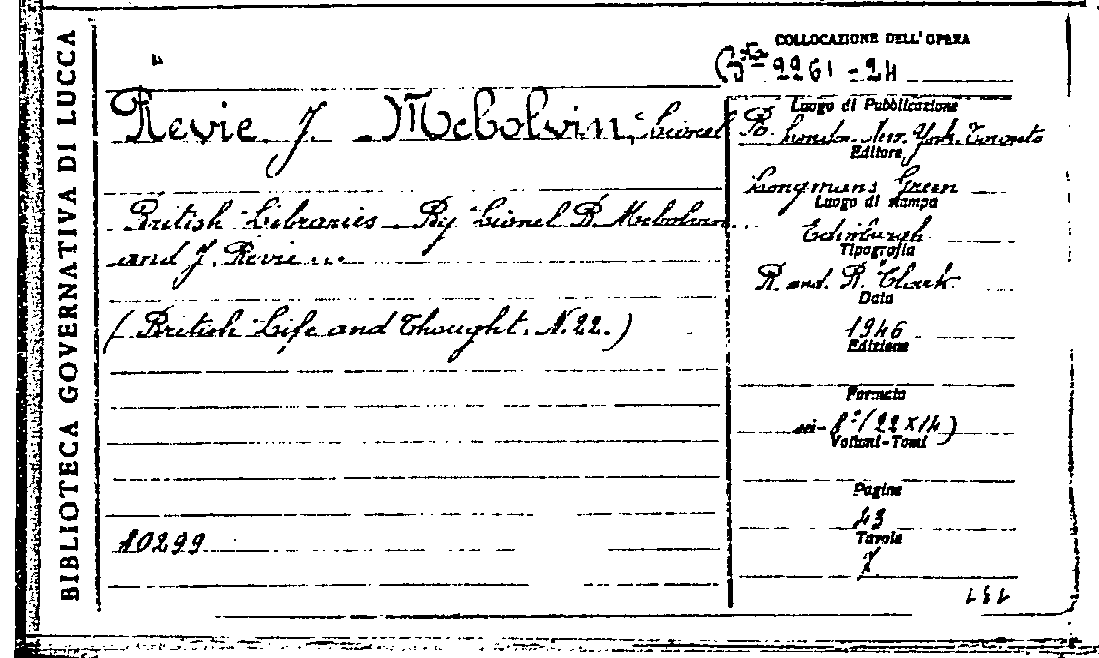 BIBLIOTECA GOVERNATIVA DI LUCCA
COLLOCAZIONE DELL'OPERA
Bta 2261-24
Revie J. Mcbolvin, Lionel B.
British Libraries - By Lionel B. Mcbolvin
and J. Revie ...
(British Life and Thought. N. 22.)
10299
Luogo di Pubblicazione
London. New. York. Toronto
Editore
Longmans Green
Luogo di stampa
Edinburgh
Tipografia
R. and. R. Clark.
Data
1946
Edizione
Formato
in-8°(22x14)
Volumi-Tomi
Pagine
43
Tavole